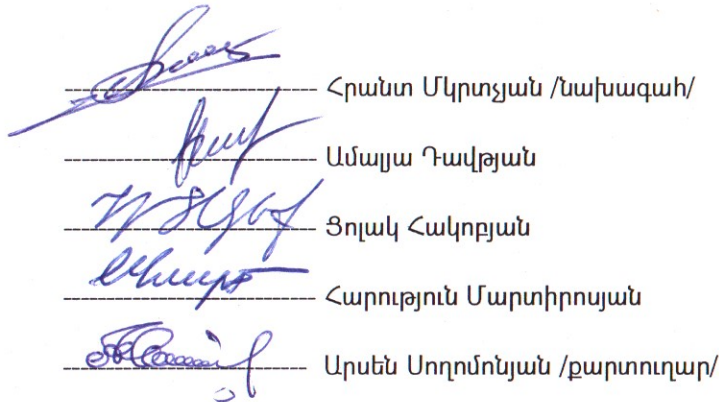 Հրանտ Մկրտչյան /նախագահ/
Ամալյա Դավթյան
Ցոլակ Հակոբյան
Հարություն Մարտիրոսյան
Արսեն Սողոմոնյան /քարտուղար/